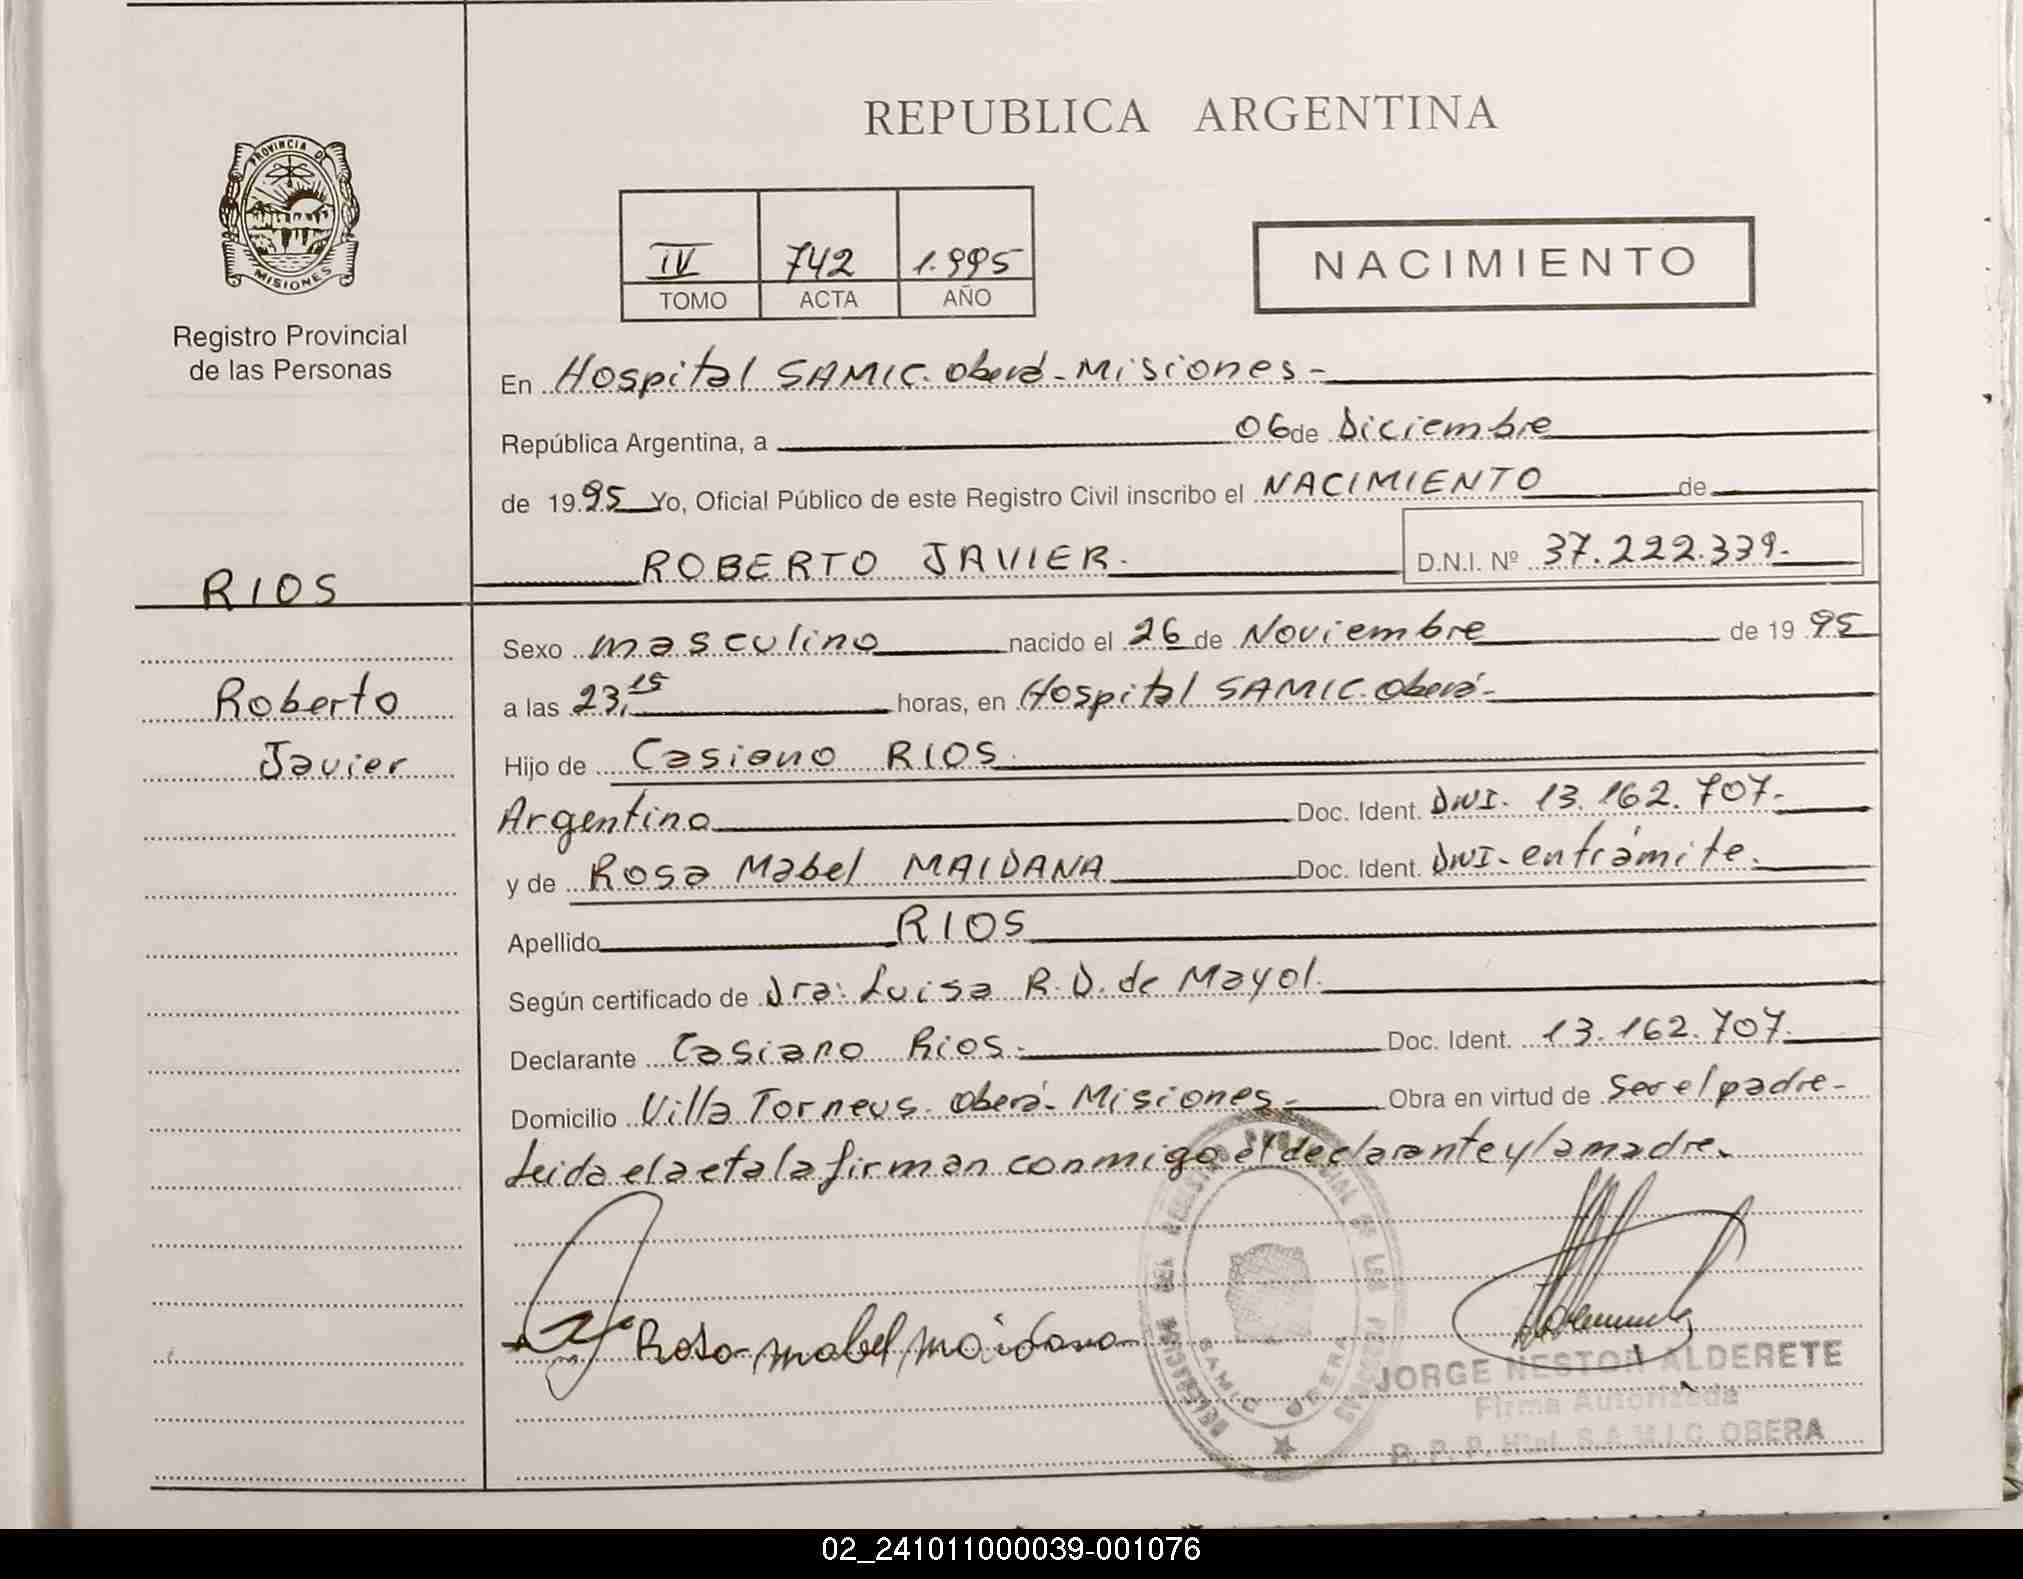 REPUBLICA ARGENTINA
PROVINCIA DE
MISIONES
Registro Provincial
de las Personas
IV 742 1.995
TOMO ACTA AÑO
NACIMIENTO
En Hospital SAMIC. Oberá - Misiones -
República Argentina, a 06 de Diciembre
de 1995 Yo, Oficial Público de este Registro Civil inscribo el NACIMIENTO de
ROBERTO JAVIER.
D.N.I. Nº 37.222.339.-
RIOS
Roberto
Javier
Sexo masculino nacido el 26 de Noviembre de 1995
a las 23,15 horas, en Hospital SAMIC. Oberá -
Hijo de Casiano RIOS.
Argentino Doc. Ident. DNI. 13.162.707.-
y de Rosa Mabel MAIDANA Doc. Ident. DNI - en trámite.
Apellido RIOS
Según certificado de Dra: Luisa R.D. de Mayol.
Declarante Casiano Rios.- Doc. Ident. 13.162.707.
Domicilio Villa Torneus. Oberá - Misiones.- Obra en virtud de ser el padre.-
Leida el acta la firman conmigo el declarante y la madre.
Rosa mabel maidana
SAMIC OBERA
JORGE NESTOR ALDERETE
Firma Autorizada
R. P. P. Htal. S.A.M.I.C. OBERA
02_241011000039-001076